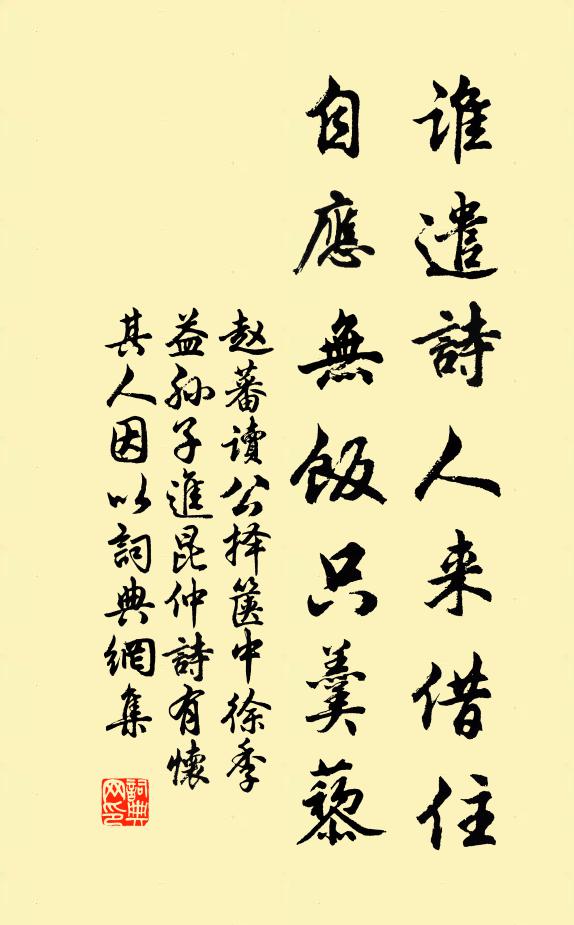 誰遣詩人来借住
自應無飯只羹藜
赵蕃讀公择篋中徐季
益孙子進昆仲詩有懷
其人因以詞典網集
詞典
网印